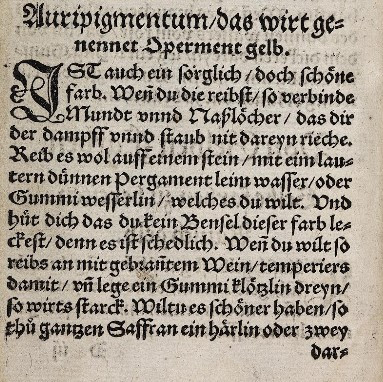 Auripigmentum/das wirt ge-
nennet Operment gelb.
IST auch ein sorglich/doch schöne
farb. Weñ du die reibst/so verbinde
Mundt vnnd Naßlöcher/das dir
der dampff vnnd staub nit dareyn rieche.
Reib es wol auff einem stein/mit eim lau-
tern dünnen Pergament leim wasser/oder
Gummi wesserlin/welches du wilt. Vnd
hůt dich das du kein Bensel dieser farb le-
ckest/denn es ist schedlich. Weñ du wilt so
reibs an mit gebrañtem Wein/temperiers
damit/vñ lege ein Gummi klötzlin dreyn/
so wirts starck. Wiltu es schöner haben/so
thů gantzen Saffran ein härlin oder zwey
dar-